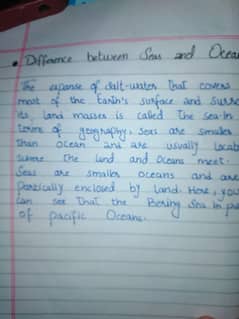 • Difference between Seas and Ocea
The expanse of salt-water that covers
most of the Earth's surface and surro
its land masses is called the sea. In
terms of geography, seas are smaller
than ocean and are usually locat
where the land and oceans meet.
Seas are smaller oceans and are
partially enclosed by land. Here, you
can see that the Bering Sea in pa
of pacific Oceans.